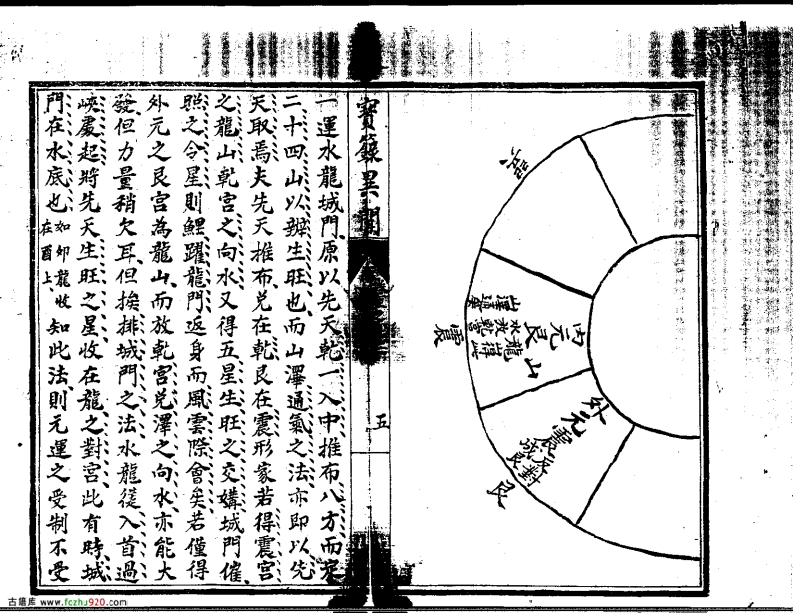 巽
山澤通氣
水放乾宮
龍得此
震
內元艮
山
外元震
艮對
城艮
艮
寶籙異聞
五
一運水龍城門原以先天乾一入中推布八方而定
二十四山以辨生旺也而山澤通氣之法亦即以先
天取焉夫先天推布兌在乾艮在震形家若得震宮
之龍山乾宮之向水又得五星生旺之交媾城門催
照之令星則鯉躍龍門返身而風雲際會矣若僅得
外元之艮宮為龍山而放乾宮兌澤之向水亦能大
發但力量稍欠耳但挨排城門之法水龍從入首過
峽處起將先天生旺之星收在龍之對宮此有時城
門在水底也如卯龍收在酉上知此法則元運之受制不受
古籍库 www.fczhu920.com